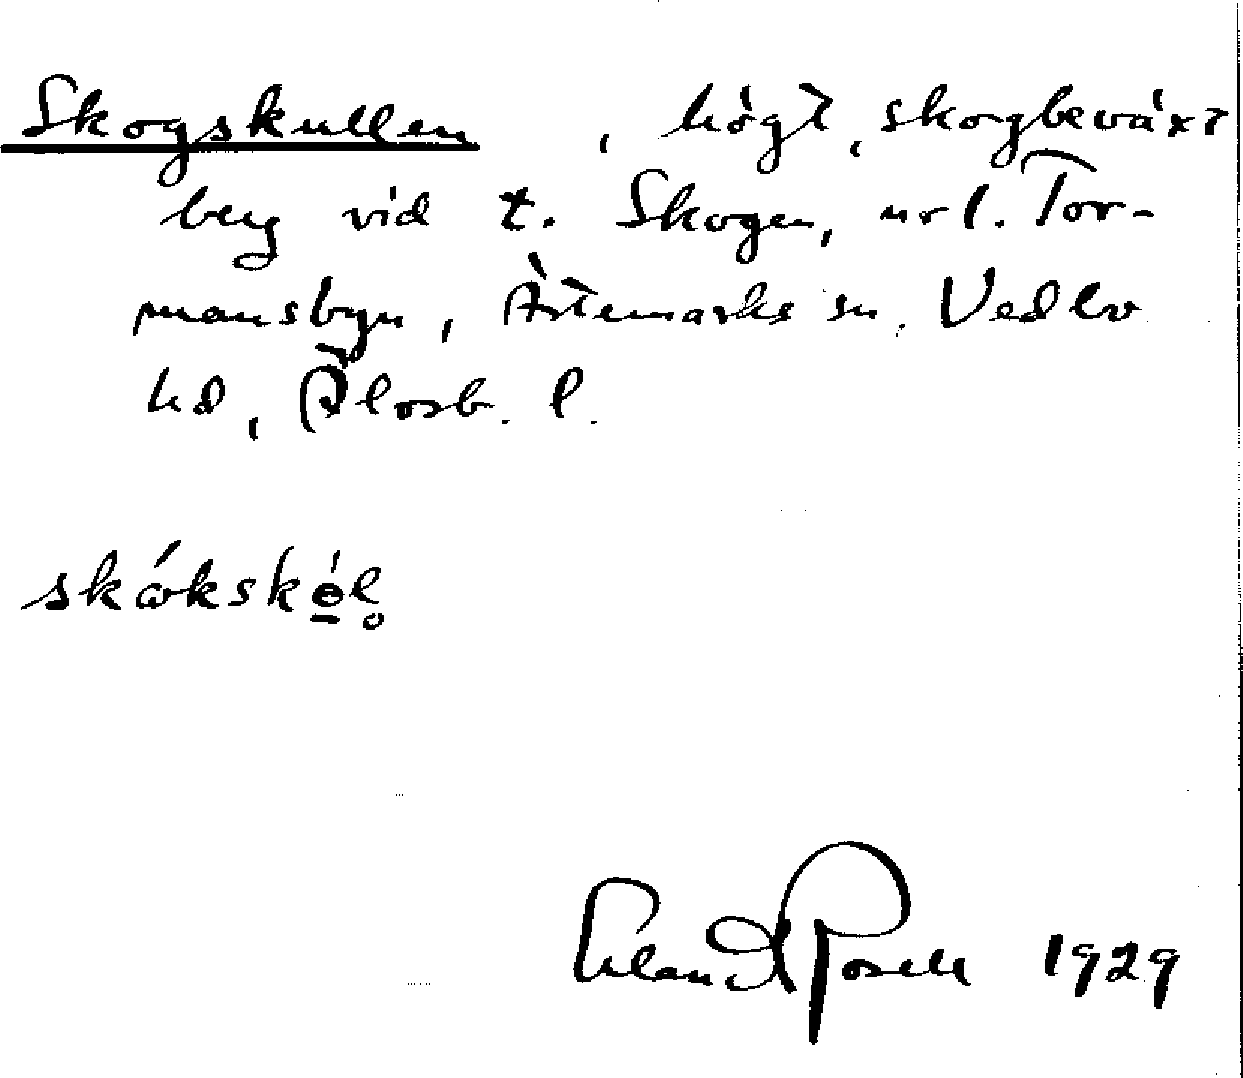 Skogskullen, högt, skogbeväxt
berg vid t. Skogen, url. Tor-
mansbyn, Ärtemarks sn. Vedbo
hd, Älvsb. l.
skɷ́kskɵ́l̥
Erland Rosell 1929